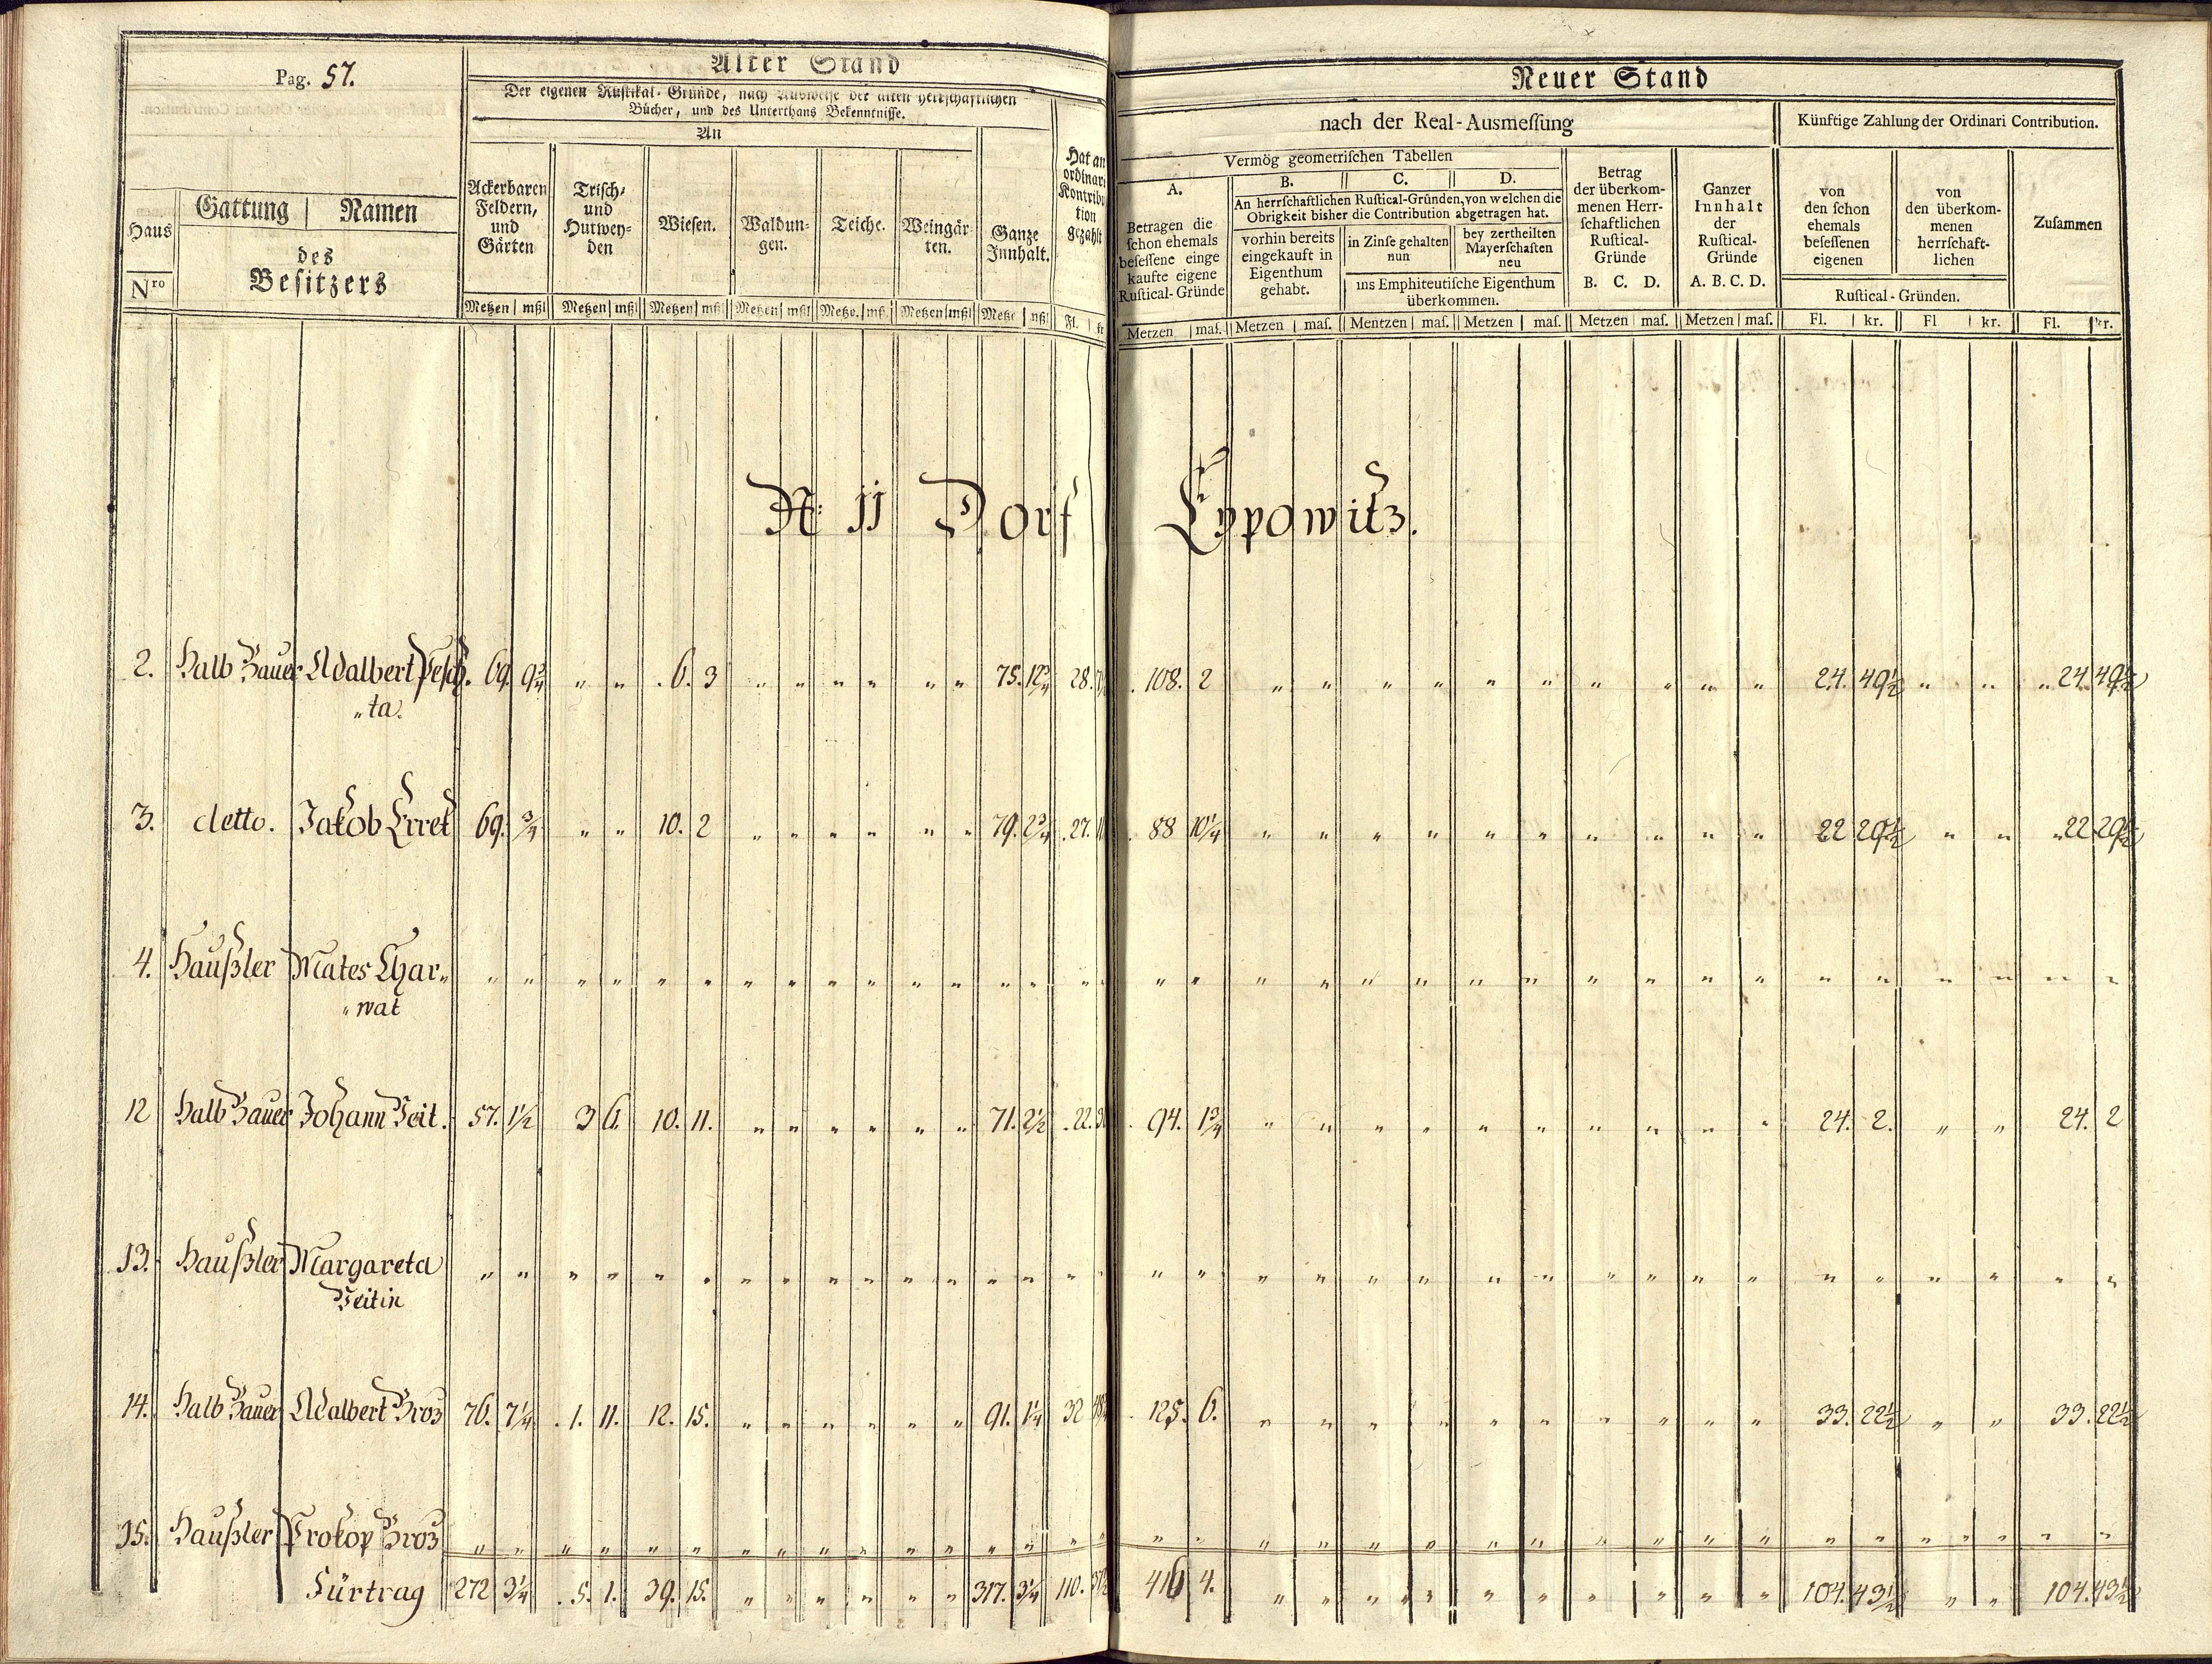 Pag. 57.
Alter Stand
Der eigenen Rustikal-Gründe, nach Ausweise der alten herrschaftlichen
Bücher, und des Unterthans Bekenntnisse.
An
Haus
Nro
Gattung | Namen
des
Besitzers
Ackerbaren
Feldern,
und
Gärten
Trisch-
und
Hutwey-
den
Wiesen.
Waldun-
gen.
Teiche.
Weingär-
ten.
Ganze
Innhalt.
Hat an
ordinari
Kontribu
tion
gezahlt
Metzen | mßl Metzen | mßl Metzen | mßl Metzen | mßl Metze. | mß. Metzen | mßl Metze | mßl Fl. | kr
Neuer Stand
nach der Real-Ausmessung
Künftige Zahlung der Ordinari Contribution.
Vermög geometrischen Tabellen
A.
Betragen die
schon ehemals
besessene einge
kaufte eigene
Rustical-Gründe
B. C. D.
An herrschaftlichen Rustical-Gründen, von welchen die
Obrigkeit bisher die Contribution abgetragen hat.
vorhin bereits
eingekauft in
Eigenthum
gehabt.
in Zinse gehalten
nun
bey zertheilten
Mayerschaften
neu
ins Emphiteutische Eigenthum
überkommen.
Betrag
der überkom-
menen Herr-
schaftlichen
Rustical-
Gründe
B. C. D.
Ganzer
Innhalt
der
Rustical-
Gründe
A. B. C. D.
von
den schon
ehemals
besessenen
eigenen
von
den überkom-
menen
herrschaft-
lichen
Rustical-Gründen.
Zusammen
Metzen | mas. Metzen | mas. Mentzen | mas. Metzen | mas. Metzen | mas. Metzen | mas. Fl. | kr. Fl | kr. Fl. | kr.
N: 11 Dorf Lypowitz.
2. Halb Bauer Adalbert Pesch. 69. 9¾ " " 6. 3 " " " " " " 75. 12¾ 28. 108. 2 " " " " " " " " " " 24. 49½ " " 24. 49½
"ta.
3. detto. Jakob Erret 69. ¾ " " 10. 2 " " " " " " 79. 2¾ 27. 88 10¼ " " " " " " " " " " 22 29½ " " 22 29½
4. Haußler Mates Char" " " " " " " " " " " " " " " " " " " " " " " " " " " " " " " " " "
"wat
12 Halb Bauer Johann Veit. 57. 1½ 3 6. 10. 11. " " " " " " 71. 2½ 22. 94. 1¾ " " " " " " " " " " 24. 2. " " 24. 2
13. Haußler Margareta " " " " " " " " " " " " " " " " " " " " " " " " " " " " " " " "
Veitin
14. Halb Bauer Adalbert Broz 76. 7¼ 1. 11. 12. 15. " " " " " " 91. 1¼ 32 125. 6. " " " " " " " " " " 33. 22½ " " 33. 22½
15. Haußler Prokop Broz " " " " " " " " " " " " " " " " " " " " " " " " " " " " " " " "
Fürtrag 272 3¼ 5. 1. 39. 15. " " " " " " 317. 3¼ 110. 416 4. " " " " " " " " " " 104. 43½ " " 104. 43½